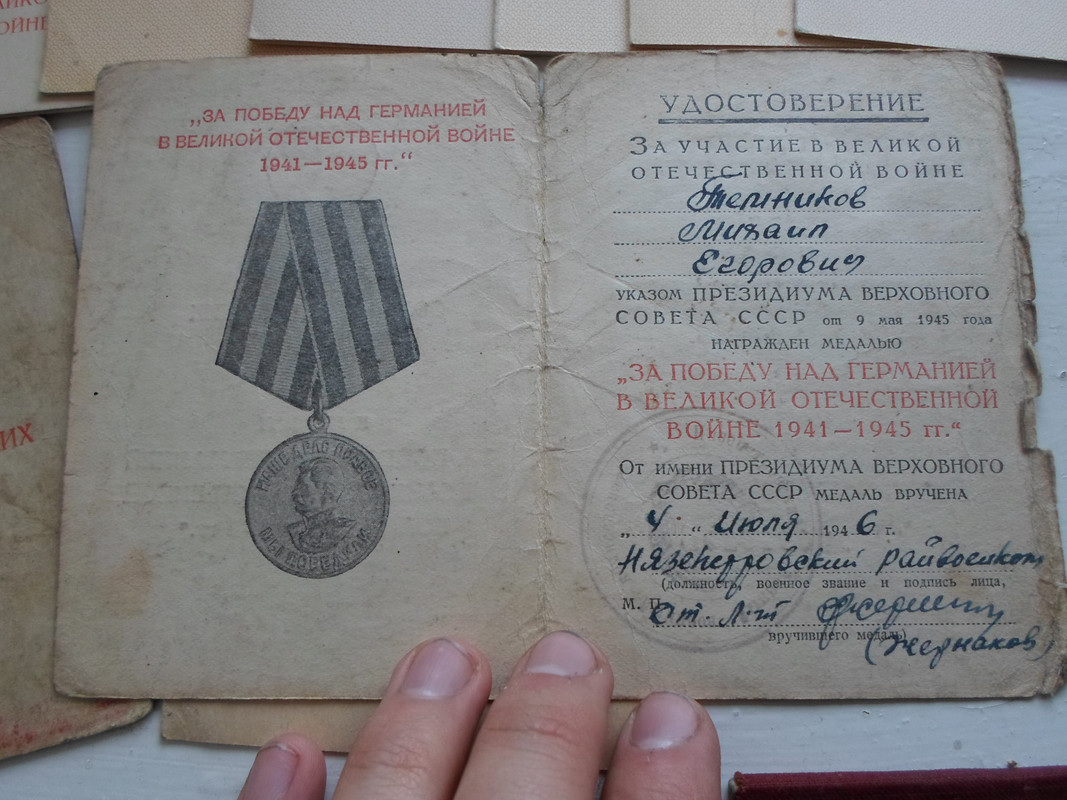 ЛИКО
ОЙНЕ
ИХ
„ЗА ПОБЕДУ НАД ГЕРМАНИЕЙ
В ВЕЛИКОЙ ОТЕЧЕСТВЕННОЙ ВОЙНЕ
1941—1945 гг.“
НАШЕ ДЕЛО ПРАВОЕ
МЫ ПОБЕДИЛИ
УДОСТОВЕРЕНИЕ
ЗА УЧАСТИЕ В ВЕЛИКОЙ
ОТЕЧЕСТВЕННОЙ ВОЙНЕ
Темников
Михаил
Егорович
УКАЗОМ ПРЕЗИДИУМА ВЕРХОВНОГО
СОВЕТА СССР от 9 мая 1945 года
НАГРАЖДЕН МЕДАЛЬЮ
„ЗА ПОБЕДУ НАД ГЕРМАНИЕЙ
В ВЕЛИКОЙ ОТЕЧЕСТВЕННОЙ
ВОЙНЕ 1941—1945 гг.“
ОТ ИМЕНИ ПРЕЗИДИУМА ВЕРХОВНОГО
СОВЕТА СССР МЕДАЛЬ ВРУЧЕНА
„4“ Июля 1946 г.
Нязепетровский райвоенком
(должность, военное звание и подпись лица,
М. П.
Ст. Л-т
вручившего медаль)
(Жернаков)